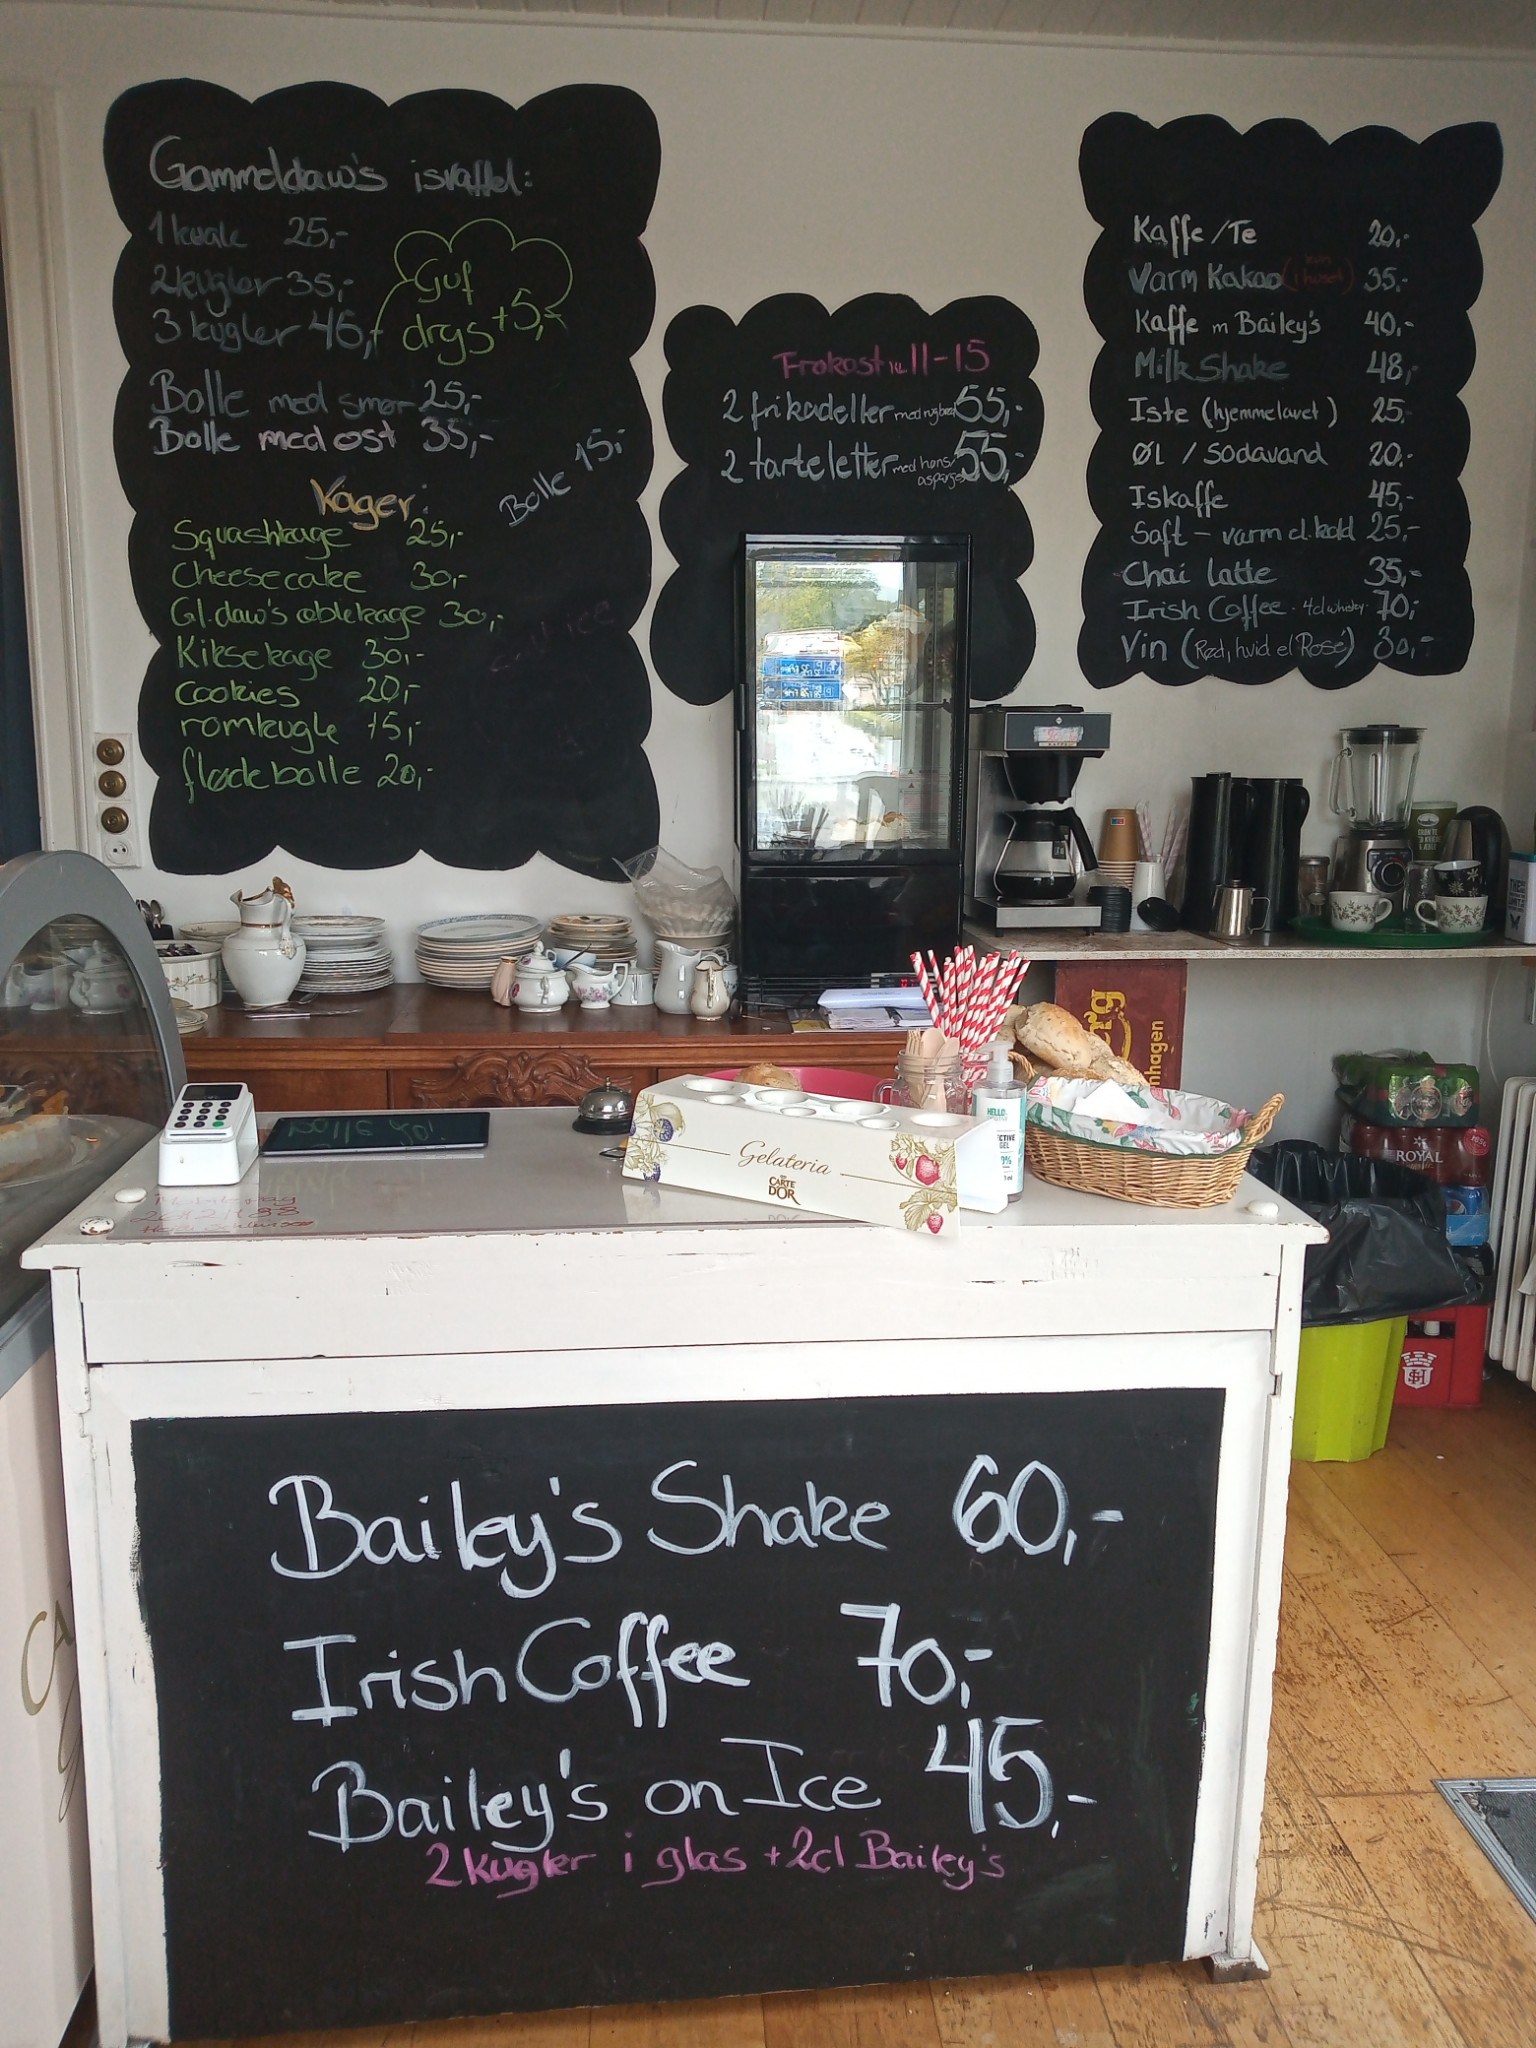 Gammeldaw's isvaffel:
1 kugle 25,-
2 kugler 35,-
3 kugler 46,-
Guf
drys +5,-
Bolle med smør 25,-
Bolle med ost 35,-
Bolle 15,-
Kager:
Squashkage 25,-
Cheesecake 30,-
Gl. daw's æblekage 30,-
Kiksekage 30,-
cookies 20,-
romkugle 15,-
flødebolle 20,-
Frokost kl. 11-15
2 frikadeller med rugbrød 55,-
2 tarteletter med høns/asparges 55,-
Kaffe/Te 20,-
Varm Kakao (kun i huset) 35,-
Kaffe m Bailey's 40,-
Milk Shake 48,-
Iste (hjemmelavet) 25,-
ØL / Sodavand 20,-
Iskaffe 45,-
Saft - varm el. kold 25,-
Chai latte 35,-
Irish Coffee - 4cl whisky - 70,-
Vin (Rød, hvid el Rosé) 30,-
nhagen
ROYAL
Gelateria
CARTE
D'OR
HELLO
GEL
Bailey's Shake 60,-
Irish Coffee 70,-
Bailey's on Ice 45,-
2 kugler i glas + 2cl Bailey's